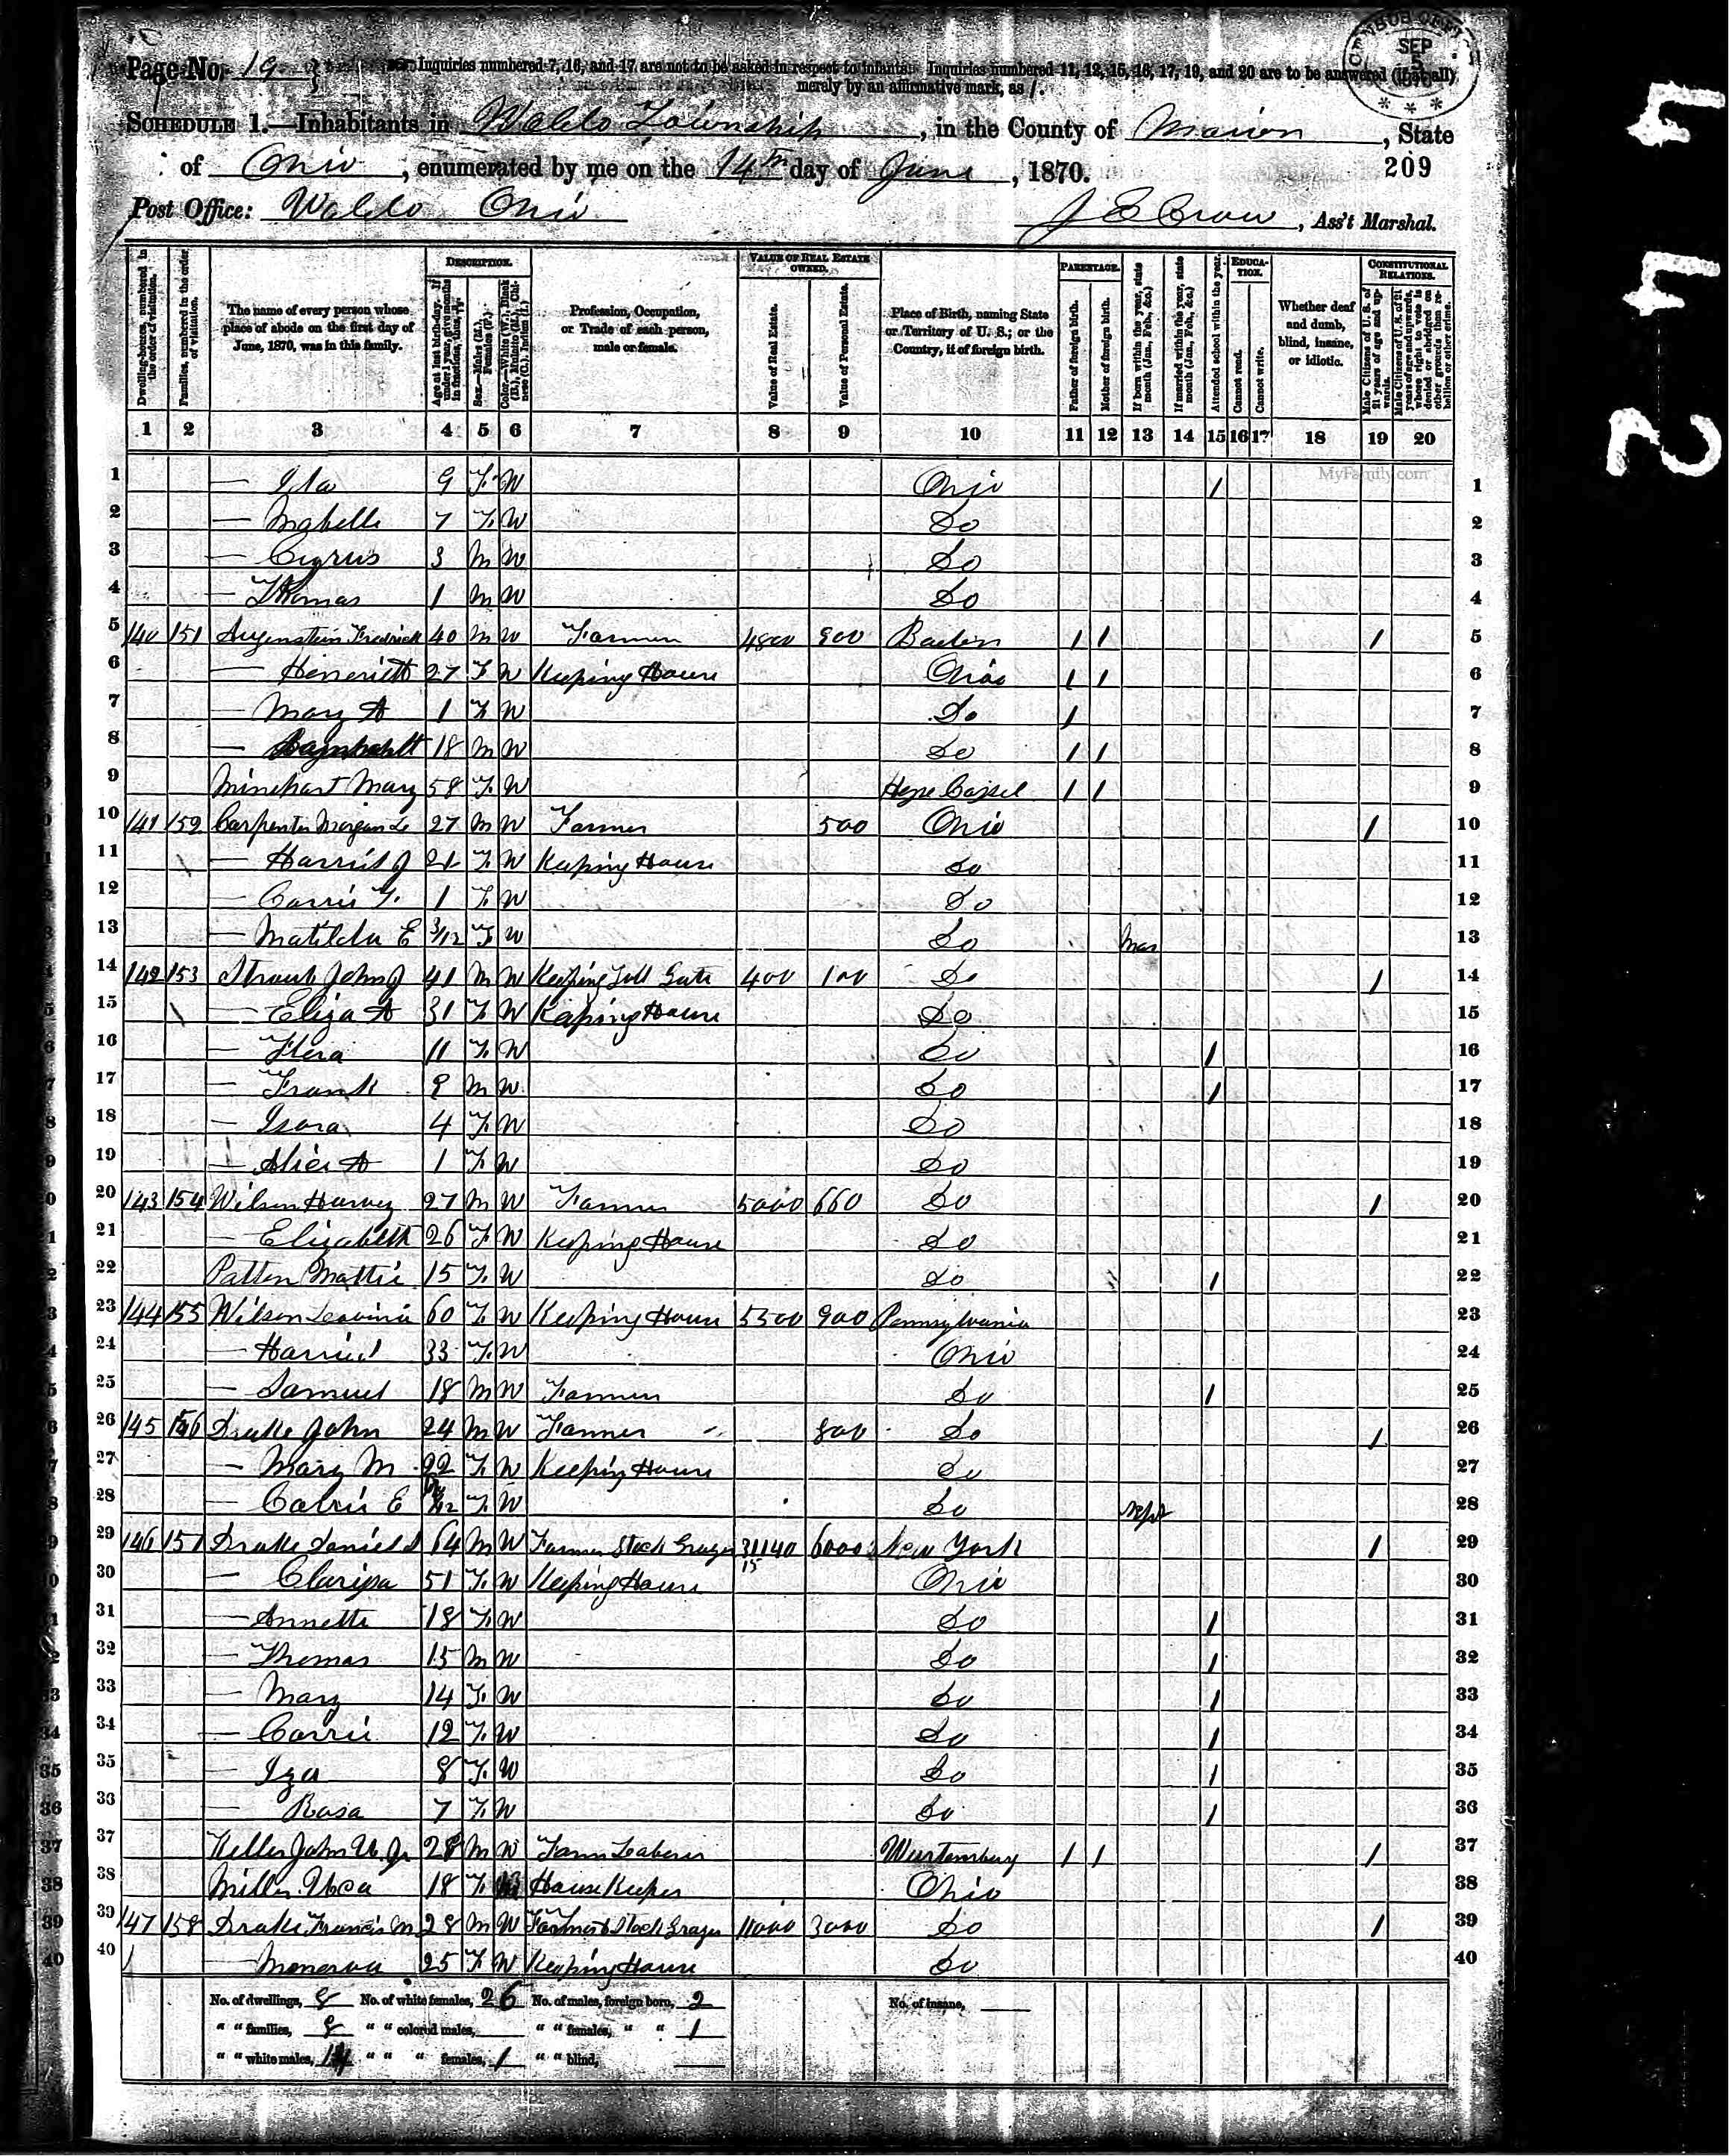 Page No. 19
Inquiries numbered 7, 16, and 17 are not to be asked in respect to infants. Inquiries numbered 11, 12, 15, 16, 17, 19, and 20 are to be answered (if at all)
merely by an affirmative mark, as /.
CENSUS OFFICE
SEP 5 1870
* * *
SCHEDULE 1.—Inhabitants in Waldo Township, in the County of Marion, State
of Ohio, enumerated by me on the 14th day of June, 1870.
209
Post Office: Waldo Ohio
J E Crow, Ass't Marshal.
Dwelling-houses, numbered in the order of visitation.
Families, numbered in the order of visitation.
The name of every person whose place of abode on the first day of June, 1870, was in this family.
DESCRIPTION.
Age at last birth-day. If under 1 year, give months in fractions, thus, 3/12.
Sex.—Males (M.), Females (F.).
Color.—White (W.), Black (B.), Mulatto (M.), Chinese (C.), Indian (I.)
Profession, Occupation, or Trade of each person, male or female.
VALUE OF REAL ESTATE OWNED.
Value of Real Estate.
Value of Personal Estate.
Place of Birth, naming State or Territory of U. S.; or the Country, if of foreign birth.
PARENTAGE.
Father of foreign birth.
Mother of foreign birth.
If born within the year, state month (Jan., Feb., &c.)
If married within the year, state month (Jan., Feb., &c.)
Attended school within the year.
EDUCATION.
Cannot read.
Cannot write.
Whether deaf and dumb, blind, insane, or idiotic.
CONSTITUTIONAL RELATIONS.
Male Citizens of U. S. of 21 years of age and upwards.
Male Citizens of U. S. of 21 years of age and upwards, whose right to vote is denied or abridged on other grounds than rebellion or other crime.
1 2 3 4 5 6 7 8 9 10 11 12 13 14 15 16 17 18 19 20
MyFamily.com
1 — Ida 9 F W Ohio / 1
2 — Mabelle 7 F W Do 2
3 — Cyrus 3 M W Do 3
4 — Thomas 1 M W Do 4
5 140 151 Augenstein Fredrick 40 M W Farmer 4800 900 Baden / / / 5
6 — Henriett 27 F W Keeping House Ohio / / 6
7 — Mary A 1 F W Do / 7
8 — 18 M W Do / / 8
9 Minehart Mary 58 F W Hesse Cassel / / 9
10 141 152 Carpenter Morgan L 27 M W Farmer 500 Ohio / 10
11 — Harriet J 21 F W Keeping House Do 11
12 — Carrie F. 1 F W Do 12
13 — Matilda E 3/12 F W Do Mar 13
14 142 153 Straub John J 41 M W Keeping Toll Gate 400 100 Do / 14
15 — Eliza A 31 F W Keeping House Do 15
16 — Flora 11 F W Do / 16
17 — Frank 9 M W Do / 17
18 — Isora 4 F W Do 18
19 — Alice A 1 F W Do 19
20 143 154 Wilson Harvey 27 M W Farmer 5000 660 Do / 20
21 — Elizabeth 26 F W Keeping House Do 21
22 Patten Mattie 15 F W Do / 22
23 144 155 Wilson Leavinia 60 F W Keeping House 5500 900 Pennsylvania 23
24 — Harriet 33 F W Ohio 24
25 — Samuel 18 M W Farmer Do / 25
26 145 156 Drake John 24 M W Farmer 800 Do / 26
27 — Mary M 22 F W Keeping House Do 27
28 — E F W Do Sept 28
29 146 157 Drake Daniel S 64 M W Farmer Stock Grazer 31140 6000 New York / 29
30 — Clarissa 51 F W Keeping House Ohio 30
31 — Annette 18 F W Do / 31
32 — Thomas 15 M W Do / 32
33 — Mary 14 F W Do / 33
34 — Carrie 12 F W Do / 34
35 — Iza 8 F W Do / 35
36 — Rosa 7 F W Do / 36
37 Keller John U. Jr 28 M W Farm Laborer Wurtemburg / / / 37
38 Miller 18 F House Keeper Ohio 38
39 147 158 Drake Francis M 28 M W Farmer & Stock Grazer 11000 3000 Do / 39
40 — Menerva 25 F W Keeping House Do 40
No. of dwellings, 8 No. of white females, 25 No. of males, foreign born, 2 No. of insane,
" " families, 8 " " colored males, " " females, " " 1
" " white males, 14 " " " females, 1 " " blind,